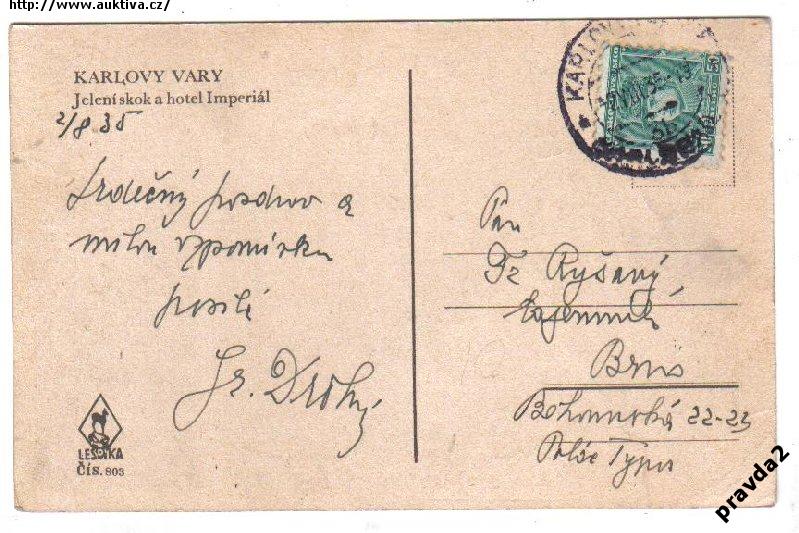 http://www.auktiva.cz/
KARLOVY VARY
Jelení skok a hotel Imperiál
2/8 35
Srdečný pozdrav a
milou vzpomínku
posílá
Fr. Drohý
LESTKA
ČÍS. 803
KARLOVY
VIII 35
Pan
Fr Ryšavý
tajemník
Brno
22-23
Palác Typos
pravda2